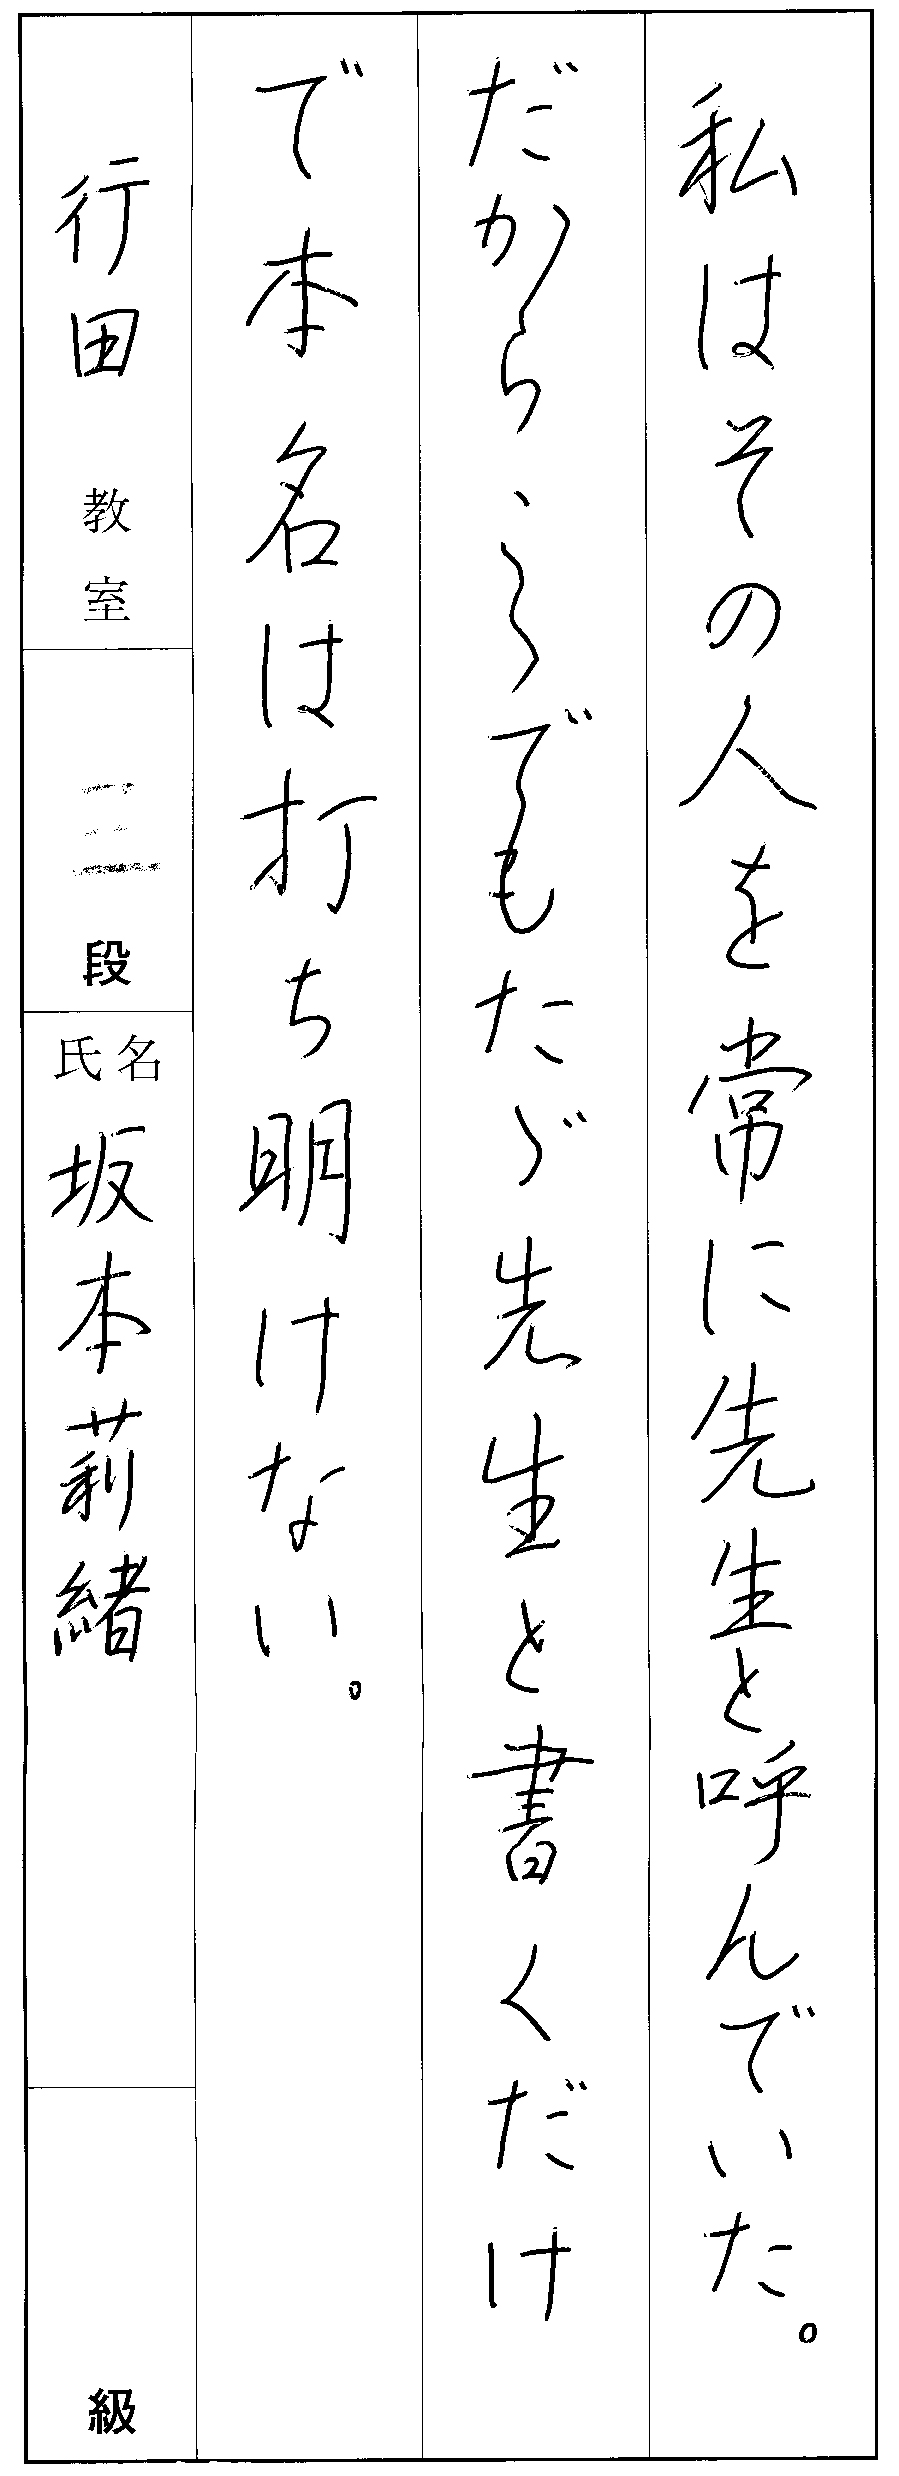 私はその人を常に先生と呼んでいた。
だから、こゝでもたゞ先生と書くだけ
で本名は打ち明けない。
行田 教室
三 段
氏名 坂本莉緒
級